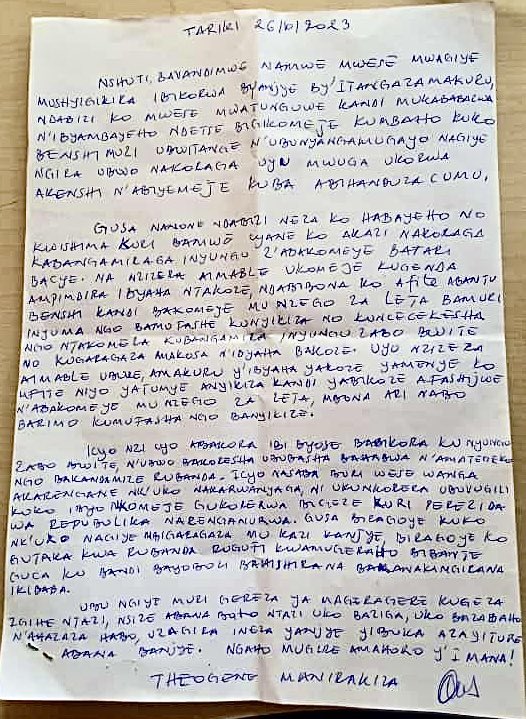 TARIKI 26/10/2023
NSHUTI, BAVANDIMWE NAMWE MWESE MWAGIYE
MUSHYIGIKIRA IBIKORWA BYANJYE BY'ITANGAZAMAKURU,
NDABIZI KO MWESE MWATUNGUWE KANDI MUKABABAZWA
N'IBYAMBAYEHO NDETSE BIGIKOMEJE KUMBAHO KUKO
BENSHI MURI UBWITANGE N'UBUNYANGAMUGAYO NAGIYE
NGIRA UBWO NAKORAGA UYU MWUGA UKORWA
AKENSHI N'ABIYEMEJE KUBA ABIHANDUZACUMU.
GUSA NANONE NDABIZI NEZA KO HABAYEHO NO
KWISHIMA KURI BAMWE CYANE KO AKAZI NAKORAGA
KABANGAMIRAGA INYUNGU Z'ABAKOMEYE BATARI
BACYE. NA NZIZERA AIMABLE UKOMEJE KUGENDA
AMPIMBIRA IBYAHA NTAKOZE, NDABIBONA KO AFITE ABANTU
BENSHI KANDI BAKOMEYE MU NZEGO ZA LETA BAMURI
INYUMA NGO BAMUFASHE KUNYIKIZA NO KUNCECEKESHA
NGO NTAKOMEZA KUBANGAMIRA INYUNGU ZABO BWITE
NO KUGARAGAZA AMAKOSA N'IBYAHA BAKOZE. UYU NZIZERA
AIMABLE UBWE, AMAKURU Y'IBYAHA YAKOZE YAMENYE KO
UFITE NIYO YATUMYE ANYIKIZA KANDI YABIKOZE AFASHIJWE
N'ABAKOMEYE MU NZEGO ZA LETA, MBONA ARI NABO
BARIMO KUMUFASHA NGO BANYIKIZE.
ICYO NZI CYO ABAKORA IBI BYOSE BABIKORA KU NYUNGU
ZABO BWITE, N'UBWO BAKORESHA UBUBASHA BAHABWA N'AMATEGEKO
NGO BAKANDAMIZE RUBANDA. ICYO NASABA BURI WESE WANGA
AKARENGANE NK'UKO NAKARWANYAGA, NI UKUNKORERA UBUVUGIZI
KOKO IBYO NKOMEJE GUKORERWA BIGEZE KURI PEREZIDA
WA REPUBULIKA NARENGANURWA. GUSA BIRAGOYE KUKO
NK'UKO NAGIYE MBIGARAGAZA MU KAZI KANJYE, BIRAGOYE KO
GUTAKA KWA RUBANDA RUGUFI KWAMUGERAHO BIBANJE
GUCA KU BANDI BAYOBOZI BAHISHIRANA BAKANAKINGIRANA
IKIBABA.
UBU NGIYE MURI GEREZA YA MAGIRAGERE KUGEZA
IGIHE NTAZI, NSIZE ABANA BATO NTAZI UKO BAZIGA, UKO BAZABAHO
N'AHAZAZA HABO, UZAGIRA INEZA YANJYE YIBUKA AZAYITURE
ABANA BANJYE. NGAHO MUGIRE AMAHORO Y'IMANA!
THEOGENE MANIRAKIZA